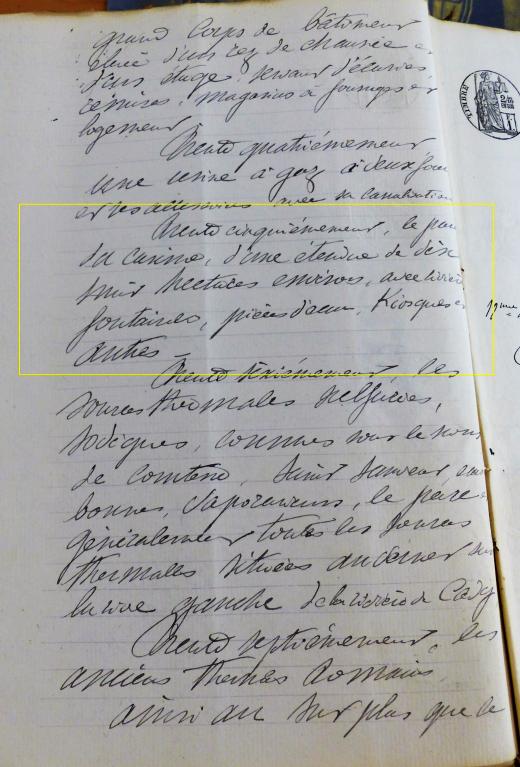 grand Corps de bâtiment
élevé d'un rez de chaussée et
d'un étage servant d'écuries,
remises, magasins à fourrages et
logement
Trente quatrièmement
une usine à gaz à deux fours
et ses accessoires avec sa canalisation
TIMBRE
Trente cinquièmement, le parc
du casino, d'une étendue de dix
huit hectares environ, avec rivière
fontaines, pièces d'eau, Kiosques et
autres
Trente sixièmement, les
sources thermales sulfurées,
sodiques, connues sous le nom
de comtesse, Saint Sauveur, eaux
bonnes, Vaporarium, le parc &
généralement toutes les sources
thermales situées au dernet sur
la rive gauche de la rivière de Cady
Trente septièmement, les
anciens thermes Romains,
ainsi au sur plus que le